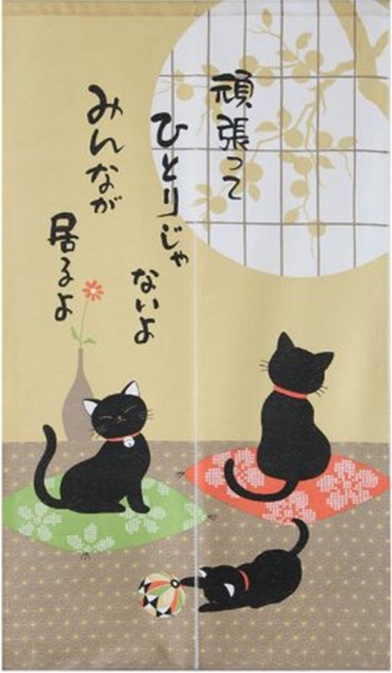 頑張って
ひとりじゃ
ないよ
みんなが
居るよ